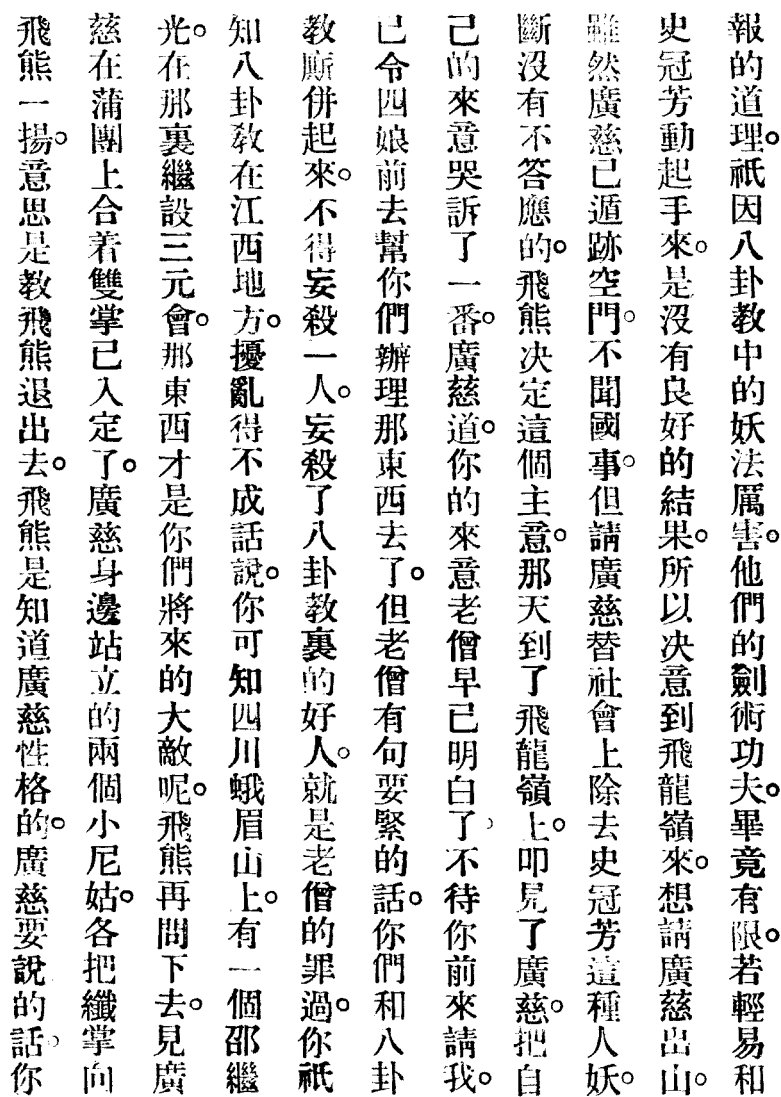 報的道理。祇因八卦教中的妖法厲害。他們的劍術功夫。畢竟有限。若輕易和
史冠芳動起手來。是沒有良好的結果。所以决意到飛龍嶺來。想請廣慈出山。
雖然廣慈已遁跡空門。不聞國事。但請廣慈替社會上除去史冠芳這種人妖。
斷沒有不答應的。飛熊决定這個主意。那天到了飛龍嶺上。叩見了廣慈。把自
己的來意哭訴了一番。廣慈道。你的來意老僧早已明白了、不待你前來請我。
已令四娘前去幫你們辦理那東西去了。但老僧有句要緊的話。你們和八卦
教廝併起來。不得妄殺一人。妄殺了八卦教裏的好人。就是老僧的罪過。你祇
知八卦教在江西地方。擾亂得不成話說。你可知四川蛾眉山上。有一個邵繼
光。在那裏繼設三元會。那東西才是你們將來的大敵呢。飛熊再問下去。見廣
慈在蒲團上合着雙掌已入定了。廣慈身邊站立的兩個小尼姑。各把纖掌向
飛熊一揚。意思是教飛熊退出去。飛熊是知道廣慈性格的。廣慈要說的話。你